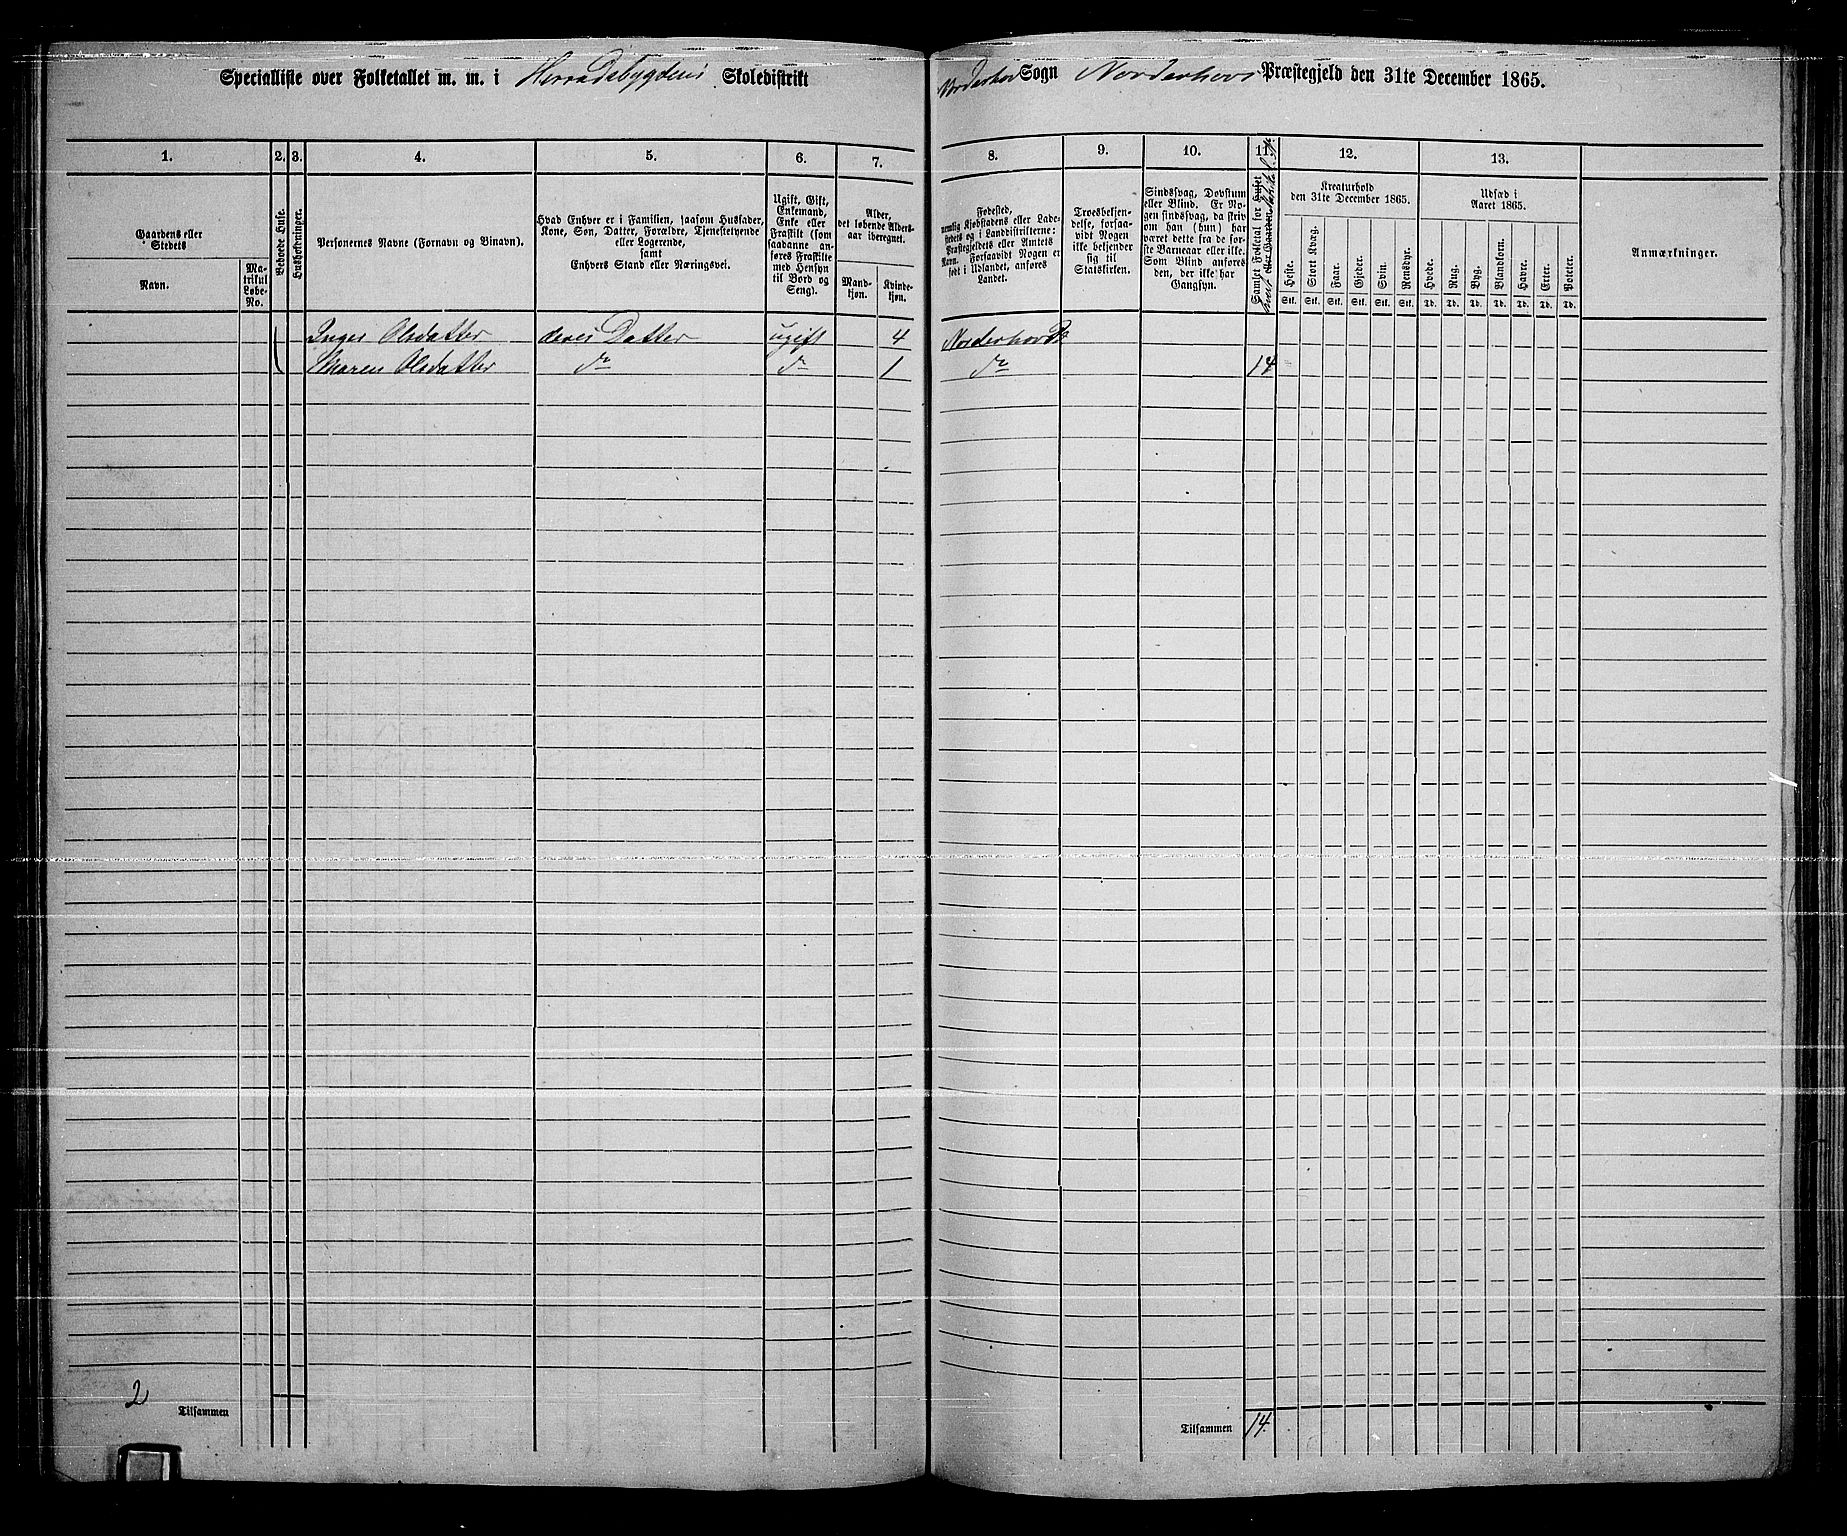 Specialliste over Folketallet m. m. i Herradsbygdens Skoledistrikt Norderhov Sogn Norderhovs Præstegjeld den 31te December 1865.
1. 2. 3. 4. 5. 6. 7. 8. 9. 10. 11. 12. 13.
Gaardens eller
Stedets
Navn.
Ma-
trikul
Løbe-
No.
Beboede Huse.
Husholdninger.
Personernes Navne (Fornavn og Binavn).
Hvad Enhver er i Familien, saasom Husfader,
Kone, Søn, Datter, Forældre, Tjenestetyende
eller Logerende,
samt
Enhvers Stand eller Næringsvei.
Ugift, Gift,
Enkemand,
Enke eller
Fraskilt (som
saadanne an-
føres Fraskilte
med Hensyn
til Bord og
Seng).
Alder,
det løbende Alders-
aar iberegnet.
Mand-
kjøn.
Kvinde-
kjøn.
Fødested,
nemlig Kjøbstadens eller Lade-
stedets og i Landdistrikterne:
Præstegjeldets eller Amtets
Navn. Forsaavidt Nogen er
født i Udlandet, anføres
Landet.
Troesbekjen-
delse, forsaa-
vidt Nogen
ikke bekjender
sig til
Statskirken.
Sindssvag, Døvstum
eller Blind. Er No-
gen sindssvag, da skriv
om han (hun) har
været dette fra de før-
ste Barneaar eller ikke.
Som Blind anføres
den, der ikke har
Gangsyn.
Samlet Folketal for Huset
Kreaturhold
den 31te December 1865.
Heste. Stort Kvæg. Faar. Gjeder. Svin. Rensdyr.
Stk. Stk. Stk. Stk. Stk. Stk.
Udsæd i
Aaret 1865.
Hvede. Rug. Byg. Blandkorn. Havre. Erter. Poteter.
Td. Td. Td. Td. Td. Td. Td.
Anmærkninger.
Inger Olsdatter deres Datter ugift 4 Norderhov Pr
Maren Olsdatter do do 1 do 14
2
Tilsammen
Tilsammen 14.